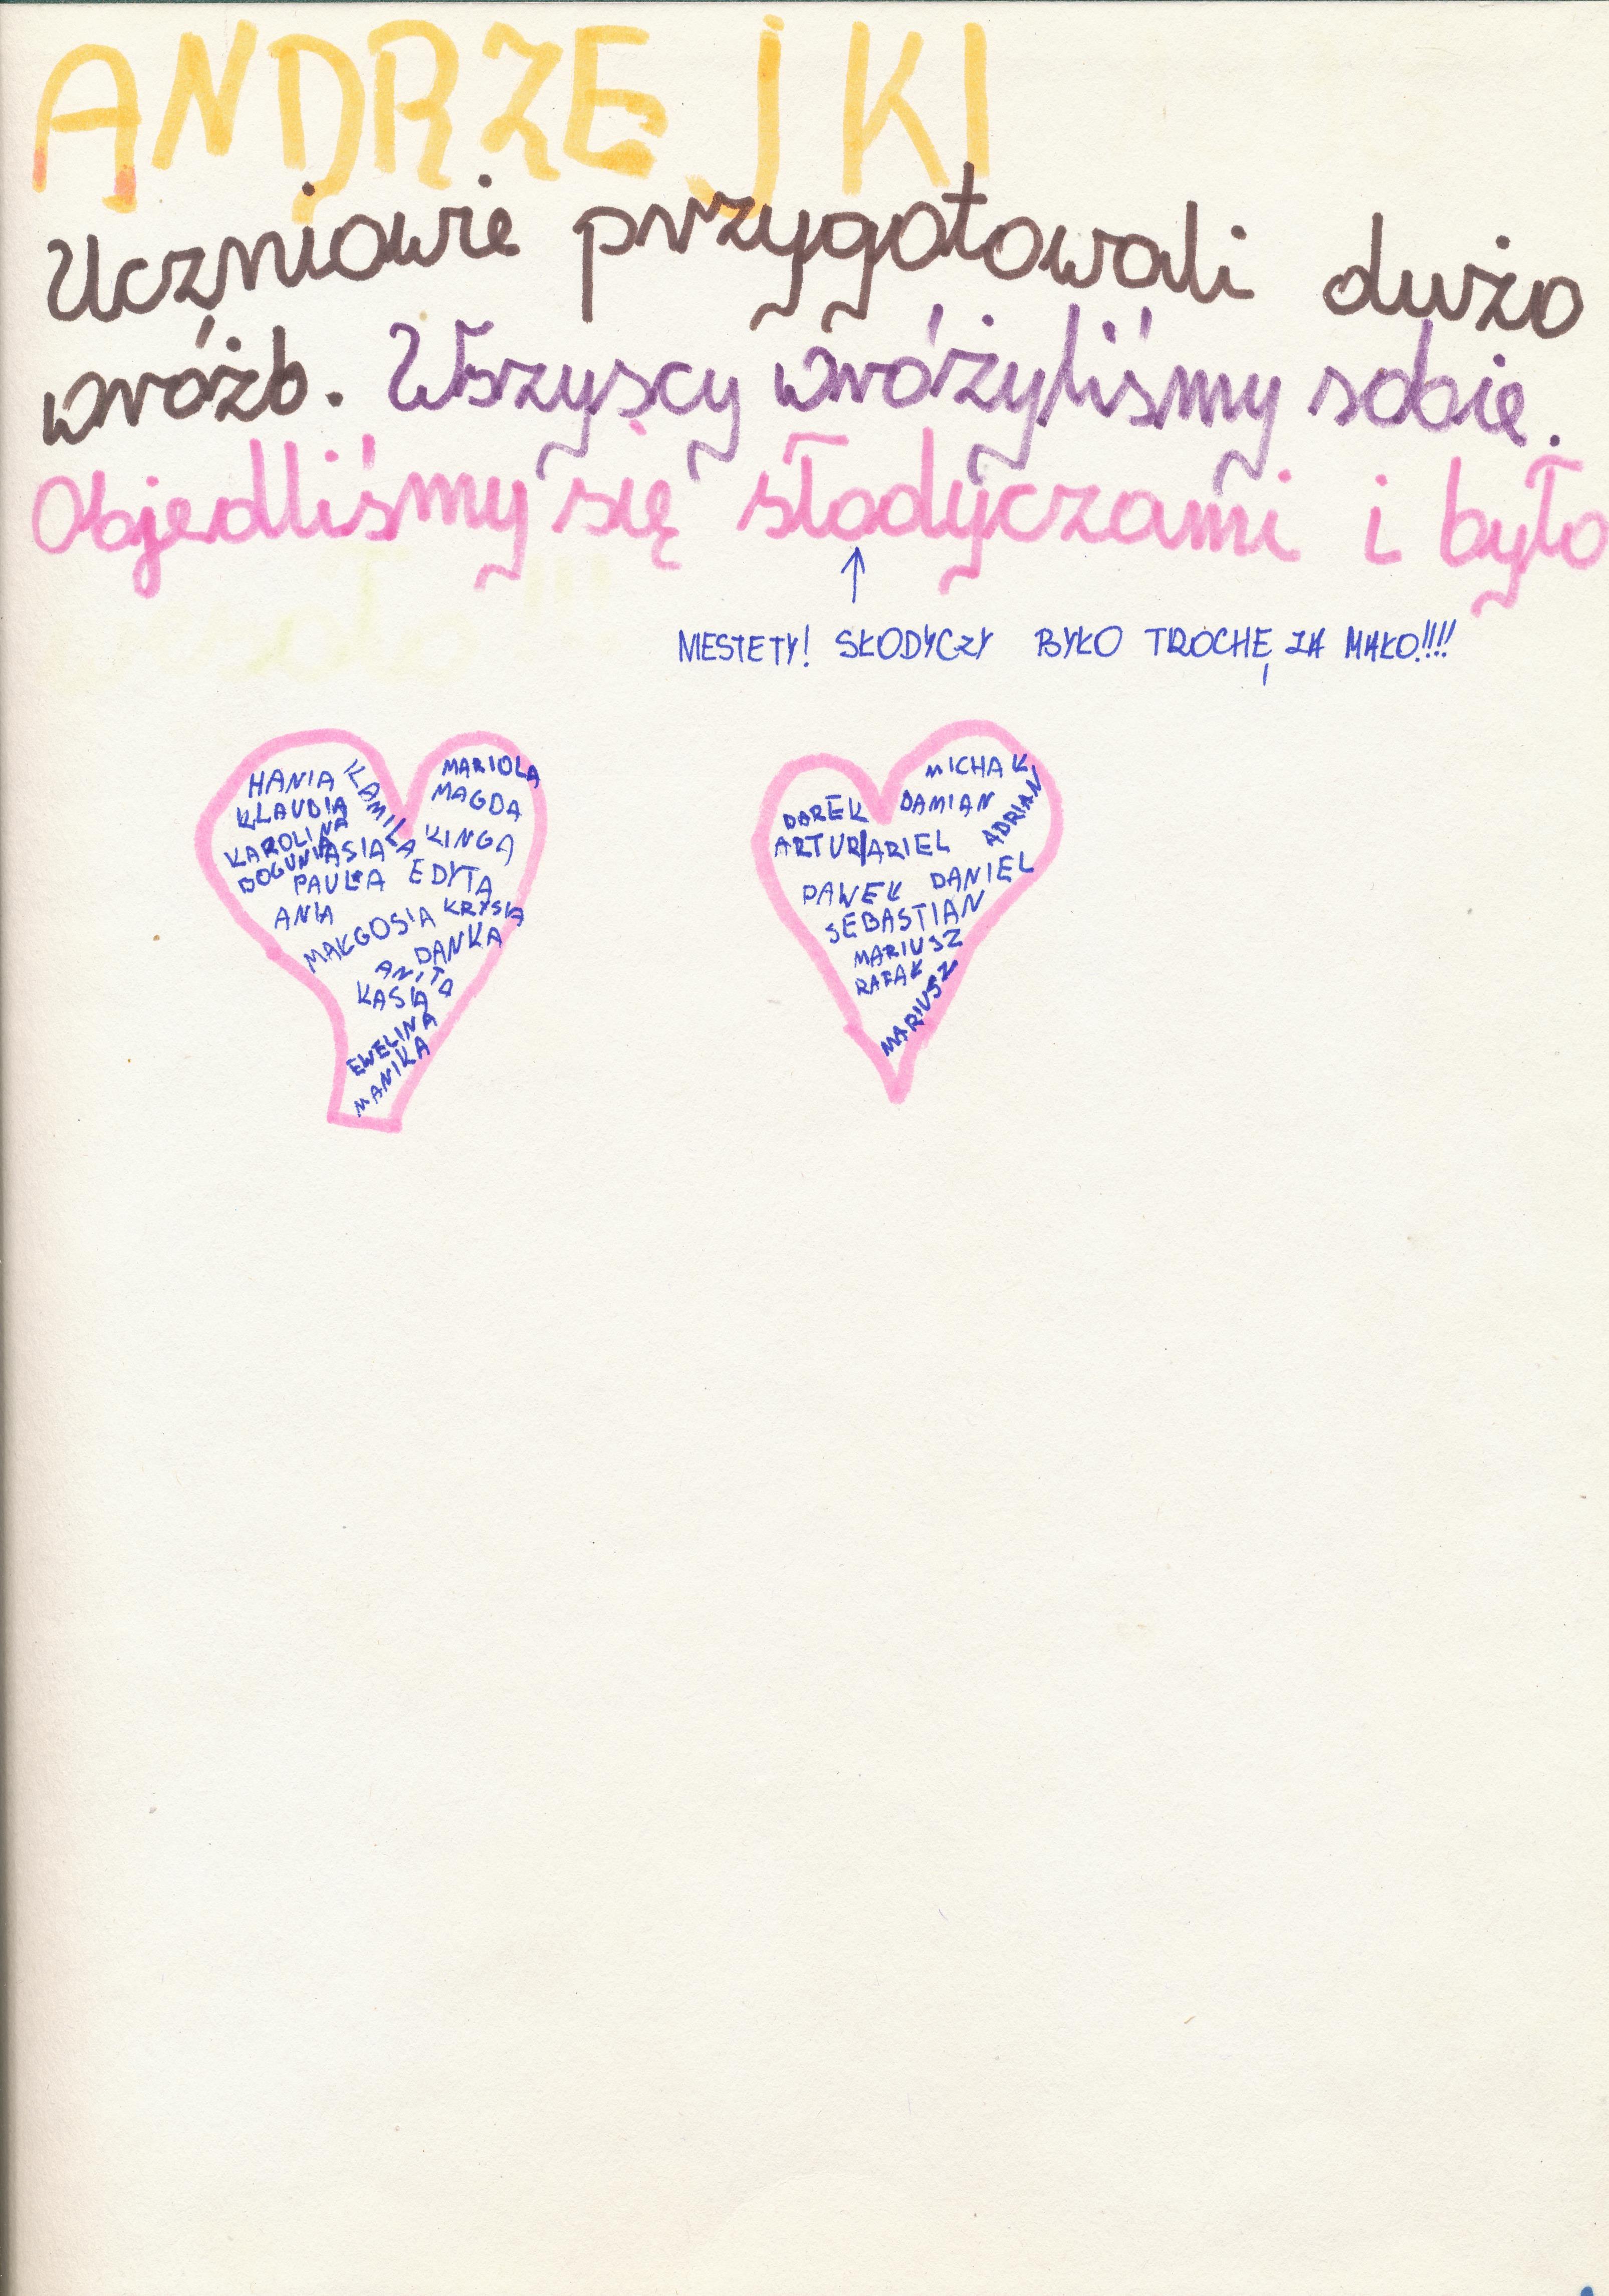 ANDRZEJKI
Uczniowie przygotowali dużo
wróżb. Wszyscy wróżyliśmy sobie.
Objedliśmy się słodyczami i było
↑
NIESTETY! SŁODYCZY BYŁO TROCHĘ ZA MAŁO!!!!
HANIA
KAMILA
KLAUDIA
KAROLINA
ASIA
PAULA
ANIA
MAŁGOSIA
MARIOLA
MAGDA
KINGA
EDYTA
KRYSIA
DANKA
ANITA
KASIA
EWELINA
MANIKA
MICHAŁ
ADRIAN
DAREK DAMIAN
ARTUR ARIEL
PAWEŁ DANIEL
SEBASTIAN
MARIUSZ
RAFAŁ
MARIUSZ